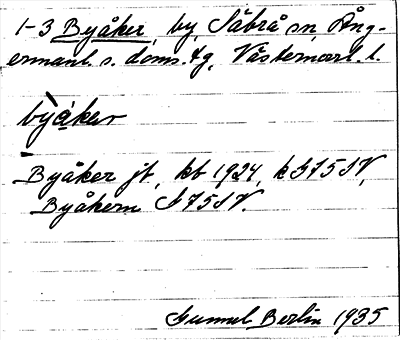 1-3 Byåker, by, Säbrå sn, Ång-
ermanl. s. doms. tg, Västernorrl. l.
byåker
Byåker jt, kb 1924, k S75SV,
Byåkern S75SV.
Gunnel Berlin 1935